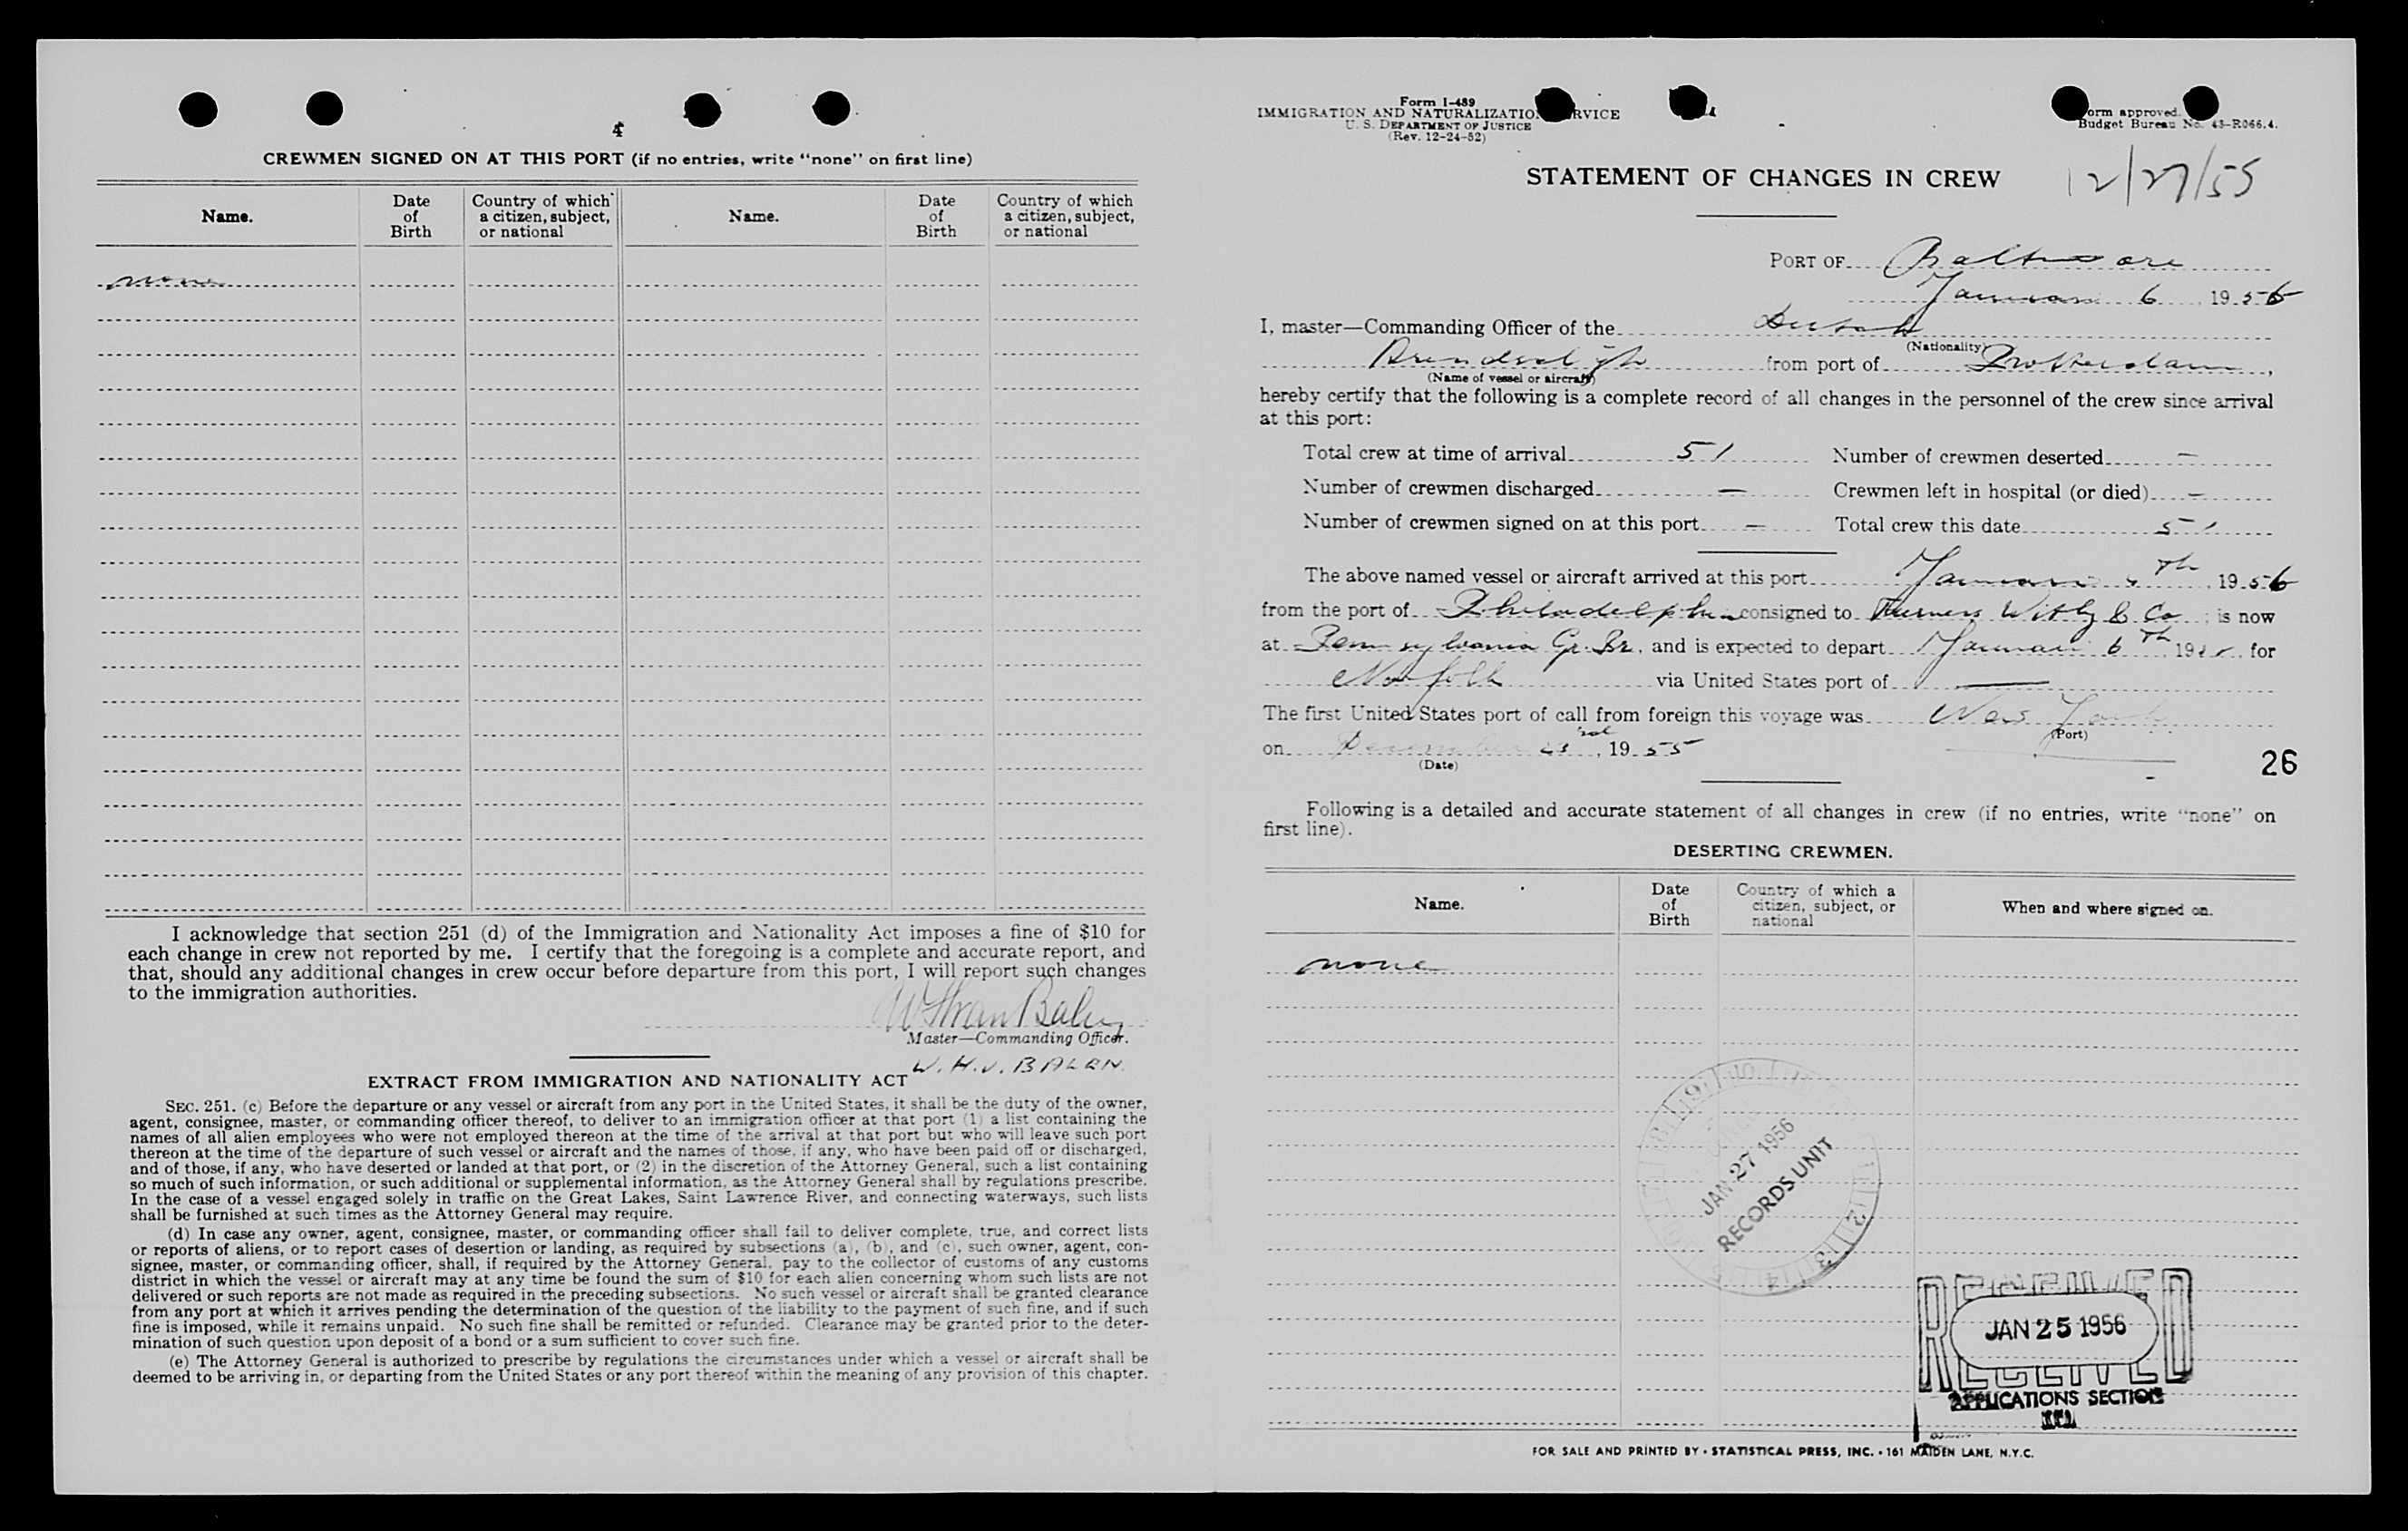 4
CREWMEN SIGNED ON AT THIS PORT (if no entries, write “none” on first line)
Name.
Date of Birth
Country of which a citizen, subject, or national
Name.
Date of Birth
Country of which a citizen, subject, or national
none
I acknowledge that section 251 (d) of the Immigration and Nationality Act imposes a fine of $10 for
each change in crew not reported by me. I certify that the foregoing is a complete and accurate report, and
that, should any additional changes in crew occur before departure from this port, I will report such changes
to the immigration authorities.
Master—Commanding Officer.
W. H. v. BALEN.
EXTRACT FROM IMMIGRATION AND NATIONALITY ACT
SEC. 251. (c) Before the departure or any vessel or aircraft from any port in the United States, it shall be the duty of the owner,
agent, consignee, master, or commanding officer thereof, to deliver to an immigration officer at that port (1) a list containing the
names of all alien employees who were not employed thereon at the time of the arrival at that port but who will leave such port
thereon at the time of the departure of such vessel or aircraft and the names of those, if any, who have been paid off or discharged,
and of those, if any, who have deserted or landed at that port, or (2) in the discretion of the Attorney General, such a list containing
so much of such information, or such additional or supplemental information, as the Attorney General shall by regulations prescribe.
In the case of a vessel engaged solely in traffic on the Great Lakes, Saint Lawrence River, and connecting waterways, such lists
shall be furnished at such times as the Attorney General may require.
(d) In case any owner, agent, consignee, master, or commanding officer shall fail to deliver complete, true, and correct lists
or reports of aliens, or to report cases of desertion or landing, as required by subsections (a), (b), and (c), such owner, agent, con-
signee, master, or commanding officer, shall, if required by the Attorney General, pay to the collector of customs of any customs
district in which the vessel or aircraft may at any time be found the sum of $10 for each alien concerning whom such lists are not
delivered or such reports are not made as required in the preceding subsections. No such vessel or aircraft shall be granted clearance
from any port at which it arrives pending the determination of the question of the liability to the payment of such fine, and if such
fine is imposed, while it remains unpaid. No such fine shall be remitted or refunded. Clearance may be granted prior to the deter-
mination of such question upon deposit of a bond or a sum sufficient to cover such fine.
(e) The Attorney General is authorized to prescribe by regulations the circumstances under which a vessel or aircraft shall be
deemed to be arriving in, or departing from the United States or any port thereof within the meaning of any provision of this chapter.
Form I-489
IMMIGRATION AND NATURALIZATION SERVICE
U. S. DEPARTMENT OF JUSTICE
(Rev. 12-24-52)
Form approved.
Budget Bureau No. 43-R066.4.
STATEMENT OF CHANGES IN CREW
12/27/55
PORT OF Baltimore
January 6, 1956
I, master—Commanding Officer of the Dutch
(Nationality)
from port of Rotterdam,
(Name of vessel or aircraft)
hereby certify that the following is a complete record of all changes in the personnel of the crew since arrival
at this port:
Total crew at time of arrival 51 Number of crewmen deserted —
Number of crewmen discharged — Crewmen left in hospital (or died) —
Number of crewmen signed on at this port — Total crew this date 51
The above named vessel or aircraft arrived at this port January 4th, 1956
from the port of Philadelphia consigned to Furness Withy & Co; is now
at Pennsylvania Gr. Br., and is expected to depart January 6th, 19 for
Norfolk via United States port of —
The first United States port of call from foreign this voyage was New York
(Port)
on December 23rd, 1955
(Date)
26
Following is a detailed and accurate statement of all changes in crew (if no entries, write “none” on
first line).
DESERTING CREWMEN.
Name.
Date of Birth
Country of which a citizen, subject, or national
When and where signed on.
none
JAN 27 1956
RECORDS UNIT
RECEIVED
JAN 25 1956
RECEIVED
APPLICATIONS SECTION
FOR SALE AND PRINTED BY • STATISTICAL PRESS, INC. • 161 MAIDEN LANE, N.Y.C.